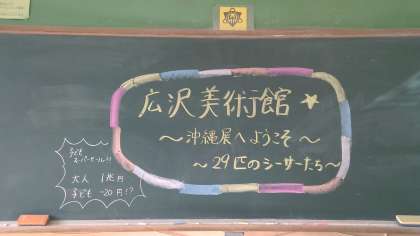 広沢美術館☆
～沖縄展へようこそ～
～29匹のシーサーたち～
子ども
スーパーセール!!
大人 1兆円
子ども -20円!?